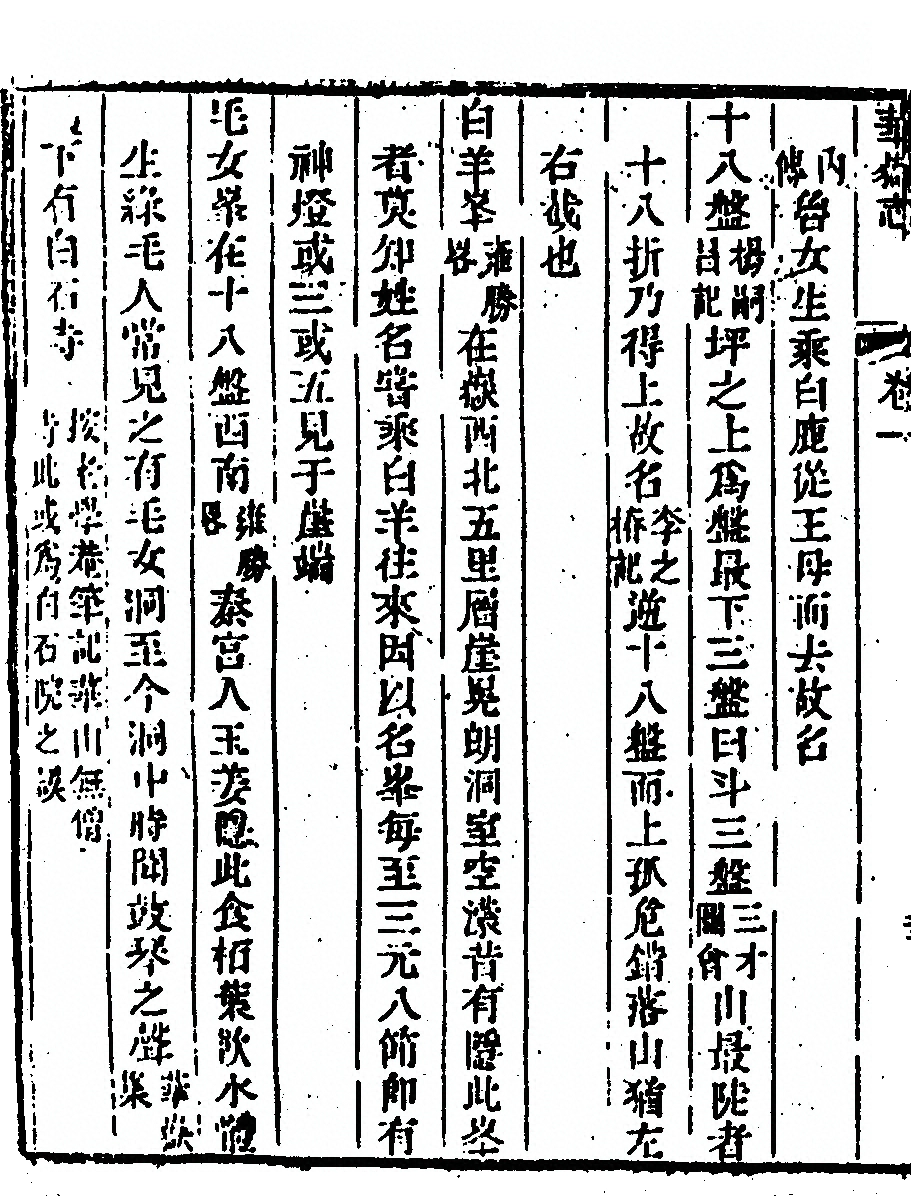 華嶽志 卷一
內傳魯女生乘白鹿從王母而去故名
十八盤楊嗣昌記坪之上爲盤最下三盤曰斗三盤三才圖會山最陡者
十八折乃得上故名李之栫記遊十八盤而上孤危銷落山猶左
右峩也
白羊峯雍勝畧在嶽西北五里層崖晃朗洞室空濛昔有隱此峯
者莫知姓名嘗乘白羊往來因以名峯每至三元八節卽有
神燈或三或五見于崖端
毛女峯在十八盤西南雍勝畧秦宮人玉姜隱此食栢葉飲水體
生綠毛人常見之有毛女洞至今洞中時聞鼓琴之聲華嶽集
下有白石寺按老學菴筆記華山無僧寺此或爲白石院之誤